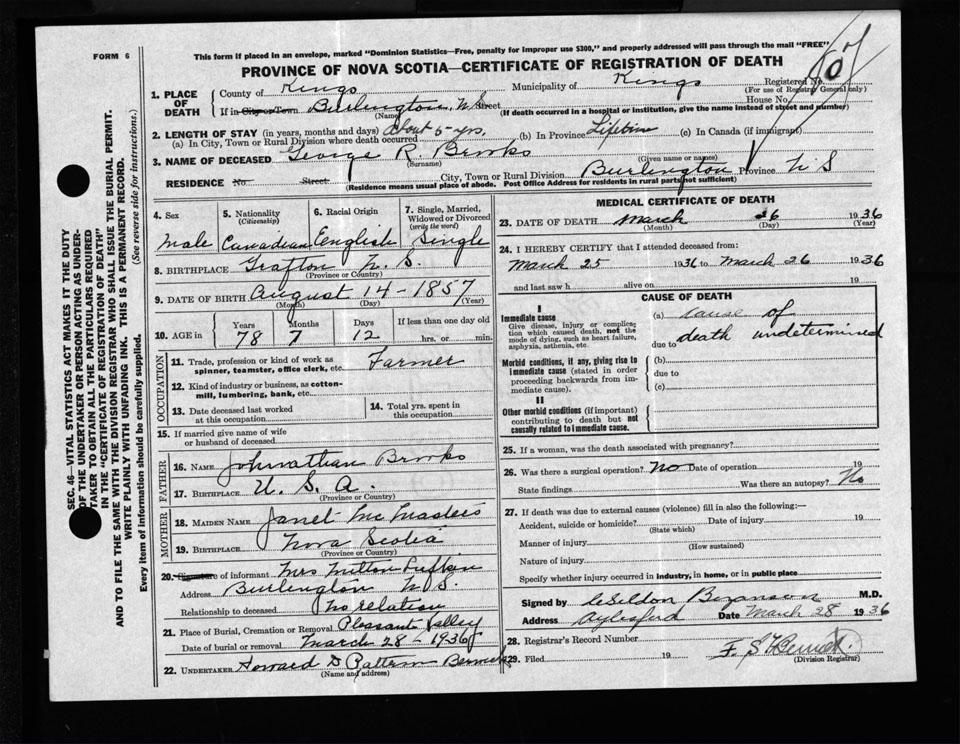 FORM 6
This form if placed in an envelope, marked "Dominion Statistics—Free, penalty for improper use $300," and properly addressed will pass through the mail "FREE"
PROVINCE OF NOVA SCOTIA—CERTIFICATE OF REGISTRATION OF DEATH
SEC. 46—VITAL STATISTICS ACT MAKES IT THE DUTY
OF THE UNDERTAKER OR PERSON ACTING AS UNDER-
TAKER TO OBTAIN ALL THE PARTICULARS REQUIRED
IN THE "CERTIFICATE OF REGISTRATION OF DEATH"
AND TO FILE THE SAME WITH THE DIVISION REGISTRAR WHO SHALL ISSUE THE BURIAL PERMIT.
WRITE PLAINLY WITH UNFADING INK. THIS IS A PERMANENT RECORD.
Every item of information should be carefully supplied. (See reverse side for instructions.)
1. PLACE OF DEATH
County of Kings Municipality of Kings Registered No.
(For use of Registrar General only)
If in City or Town Burlington, N S Street House No.
(Name) (If death occurred in a hospital or institution, give the name instead of street and number)
2. LENGTH OF STAY (in years, months and days)
(a) In City, Town or Rural Division where death occurred About 5 yrs. (b) In Province Lifetime (c) In Canada (if immigrant)
3. NAME OF DECEASED George R. Brooks
(Surname) (Given name or names)
RESIDENCE No. Street City, Town or Rural Division Burlington Province N S
(Residence means usual place of abode. Post Office Address for residents in rural parts not sufficient)
4. Sex Male
5. Nationality (Citizenship) Canadian
6. Racial Origin English
7. Single, Married, Widowed or Divorced (write the word) Single
8. BIRTHPLACE Grafton N. S.
(Province or Country)
9. DATE OF BIRTH August 14 - 1857
(Month) (Day) (Year)
10. AGE in Years 78 Months 7 Days 12 If less than one day old hrs. or min.
OCCUPATION
11. Trade, profession or kind of work as spinner, teamster, office clerk, etc. Farmer
12. Kind of industry or business, as cotton-mill, lumbering, bank, etc.
13. Date deceased last worked at this occupation
14. Total yrs. spent in this occupation
15. If married give name of wife or husband of deceased
FATHER
16. NAME Johnathan Brooks
17. BIRTHPLACE U. S. A.
(Province or Country)
MOTHER
18. MAIDEN NAME Janet McMasters
19. BIRTHPLACE Nova Scotia
(Province or Country)
20. Signature of informant Mrs Milton
Address Burlington N S.
Relationship to deceased No relation
21. Place of Burial, Cremation or Removal Pleasant Valley
Date of burial or removal March 28 - 1936
22. UNDERTAKER Howard D Berwick
(Name and address)
MEDICAL CERTIFICATE OF DEATH
23. DATE OF DEATH March 26 1936
(Month) (Day) (Year)
24. I HEREBY CERTIFY that I attended deceased from:
March 25 1936 to March 26 1936
and last saw h alive on 19
CAUSE OF DEATH
I
Immediate cause
Give disease, injury or complication which caused death, not the mode of dying, such as heart failure, asphyxia, asthenia, etc.
(a) cause of
due to death undetermined
Morbid conditions, if any, giving rise to immediate cause (stated in order proceeding backwards from immediate cause).
(b)
due to
(c)
II
Other morbid conditions (if important) contributing to death but not causally related to immediate cause.
25. If a woman, was the death associated with pregnancy?
26. Was there a surgical operation? No Date of operation 19
State findings Was there an autopsy? No
27. If death was due to external causes (violence) fill in also the following:—
Accident, suicide or homicide? Date of injury 19
(State which)
Manner of injury
(How sustained)
Nature of injury
Specify whether injury occurred in industry, in home, or in public place
Signed by Bezanson M.D.
Address Aylesford Date March 28 1936
28. Registrar's Record Number
29. Filed 19
(Division Registrar)